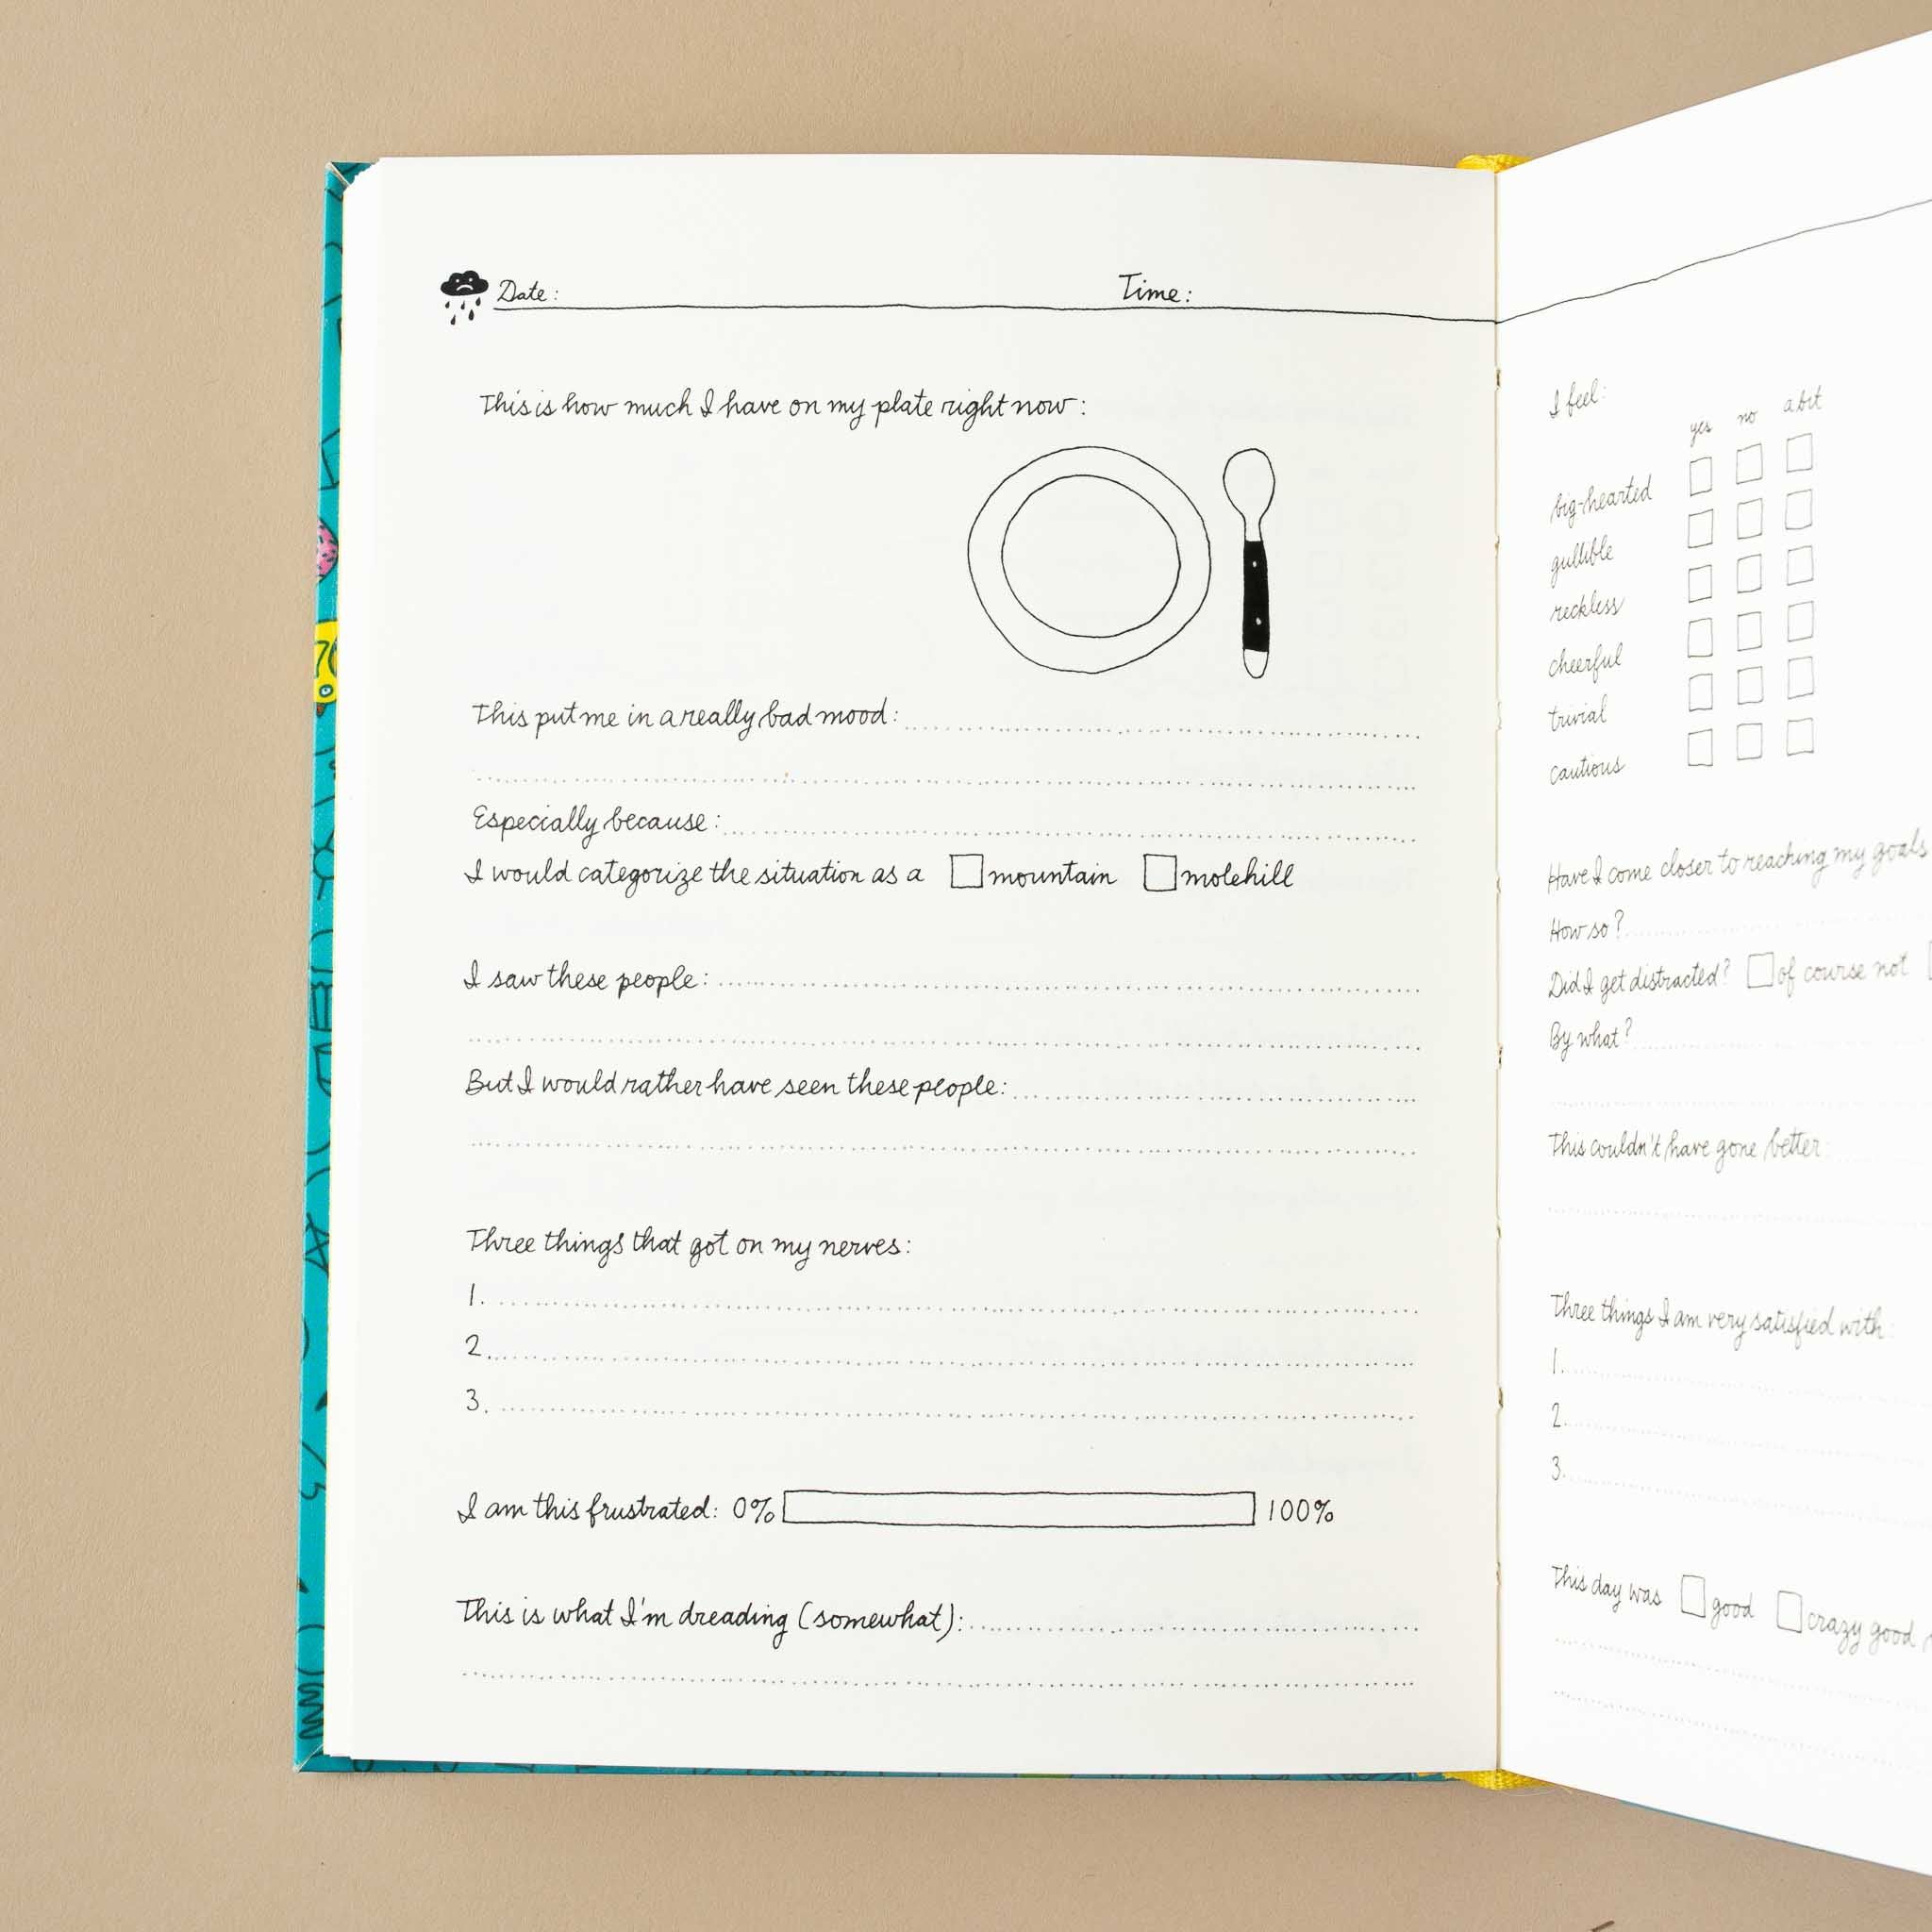 Date: Time:
This is how much I have on my plate right now:
This put me in a really bad mood:
Especially because:
I would categorize the situation as a mountain molehill
I saw these people:
But I would rather have seen these people:
Three things that got on my nerves:
1.
2.
3.
I am this frustrated: 0% 100%
This is what I'm dreading (somewhat):
I feel:
yes no a bit
big-hearted
gullible
reckless
cheerful
trivial
cautious
Have I come closer to reaching my goals
How so?
Did I get distracted? of course not
By what?
This couldn't have gone better:
Three things I am very satisfied with:
1.
2.
3.
This day was good crazy good